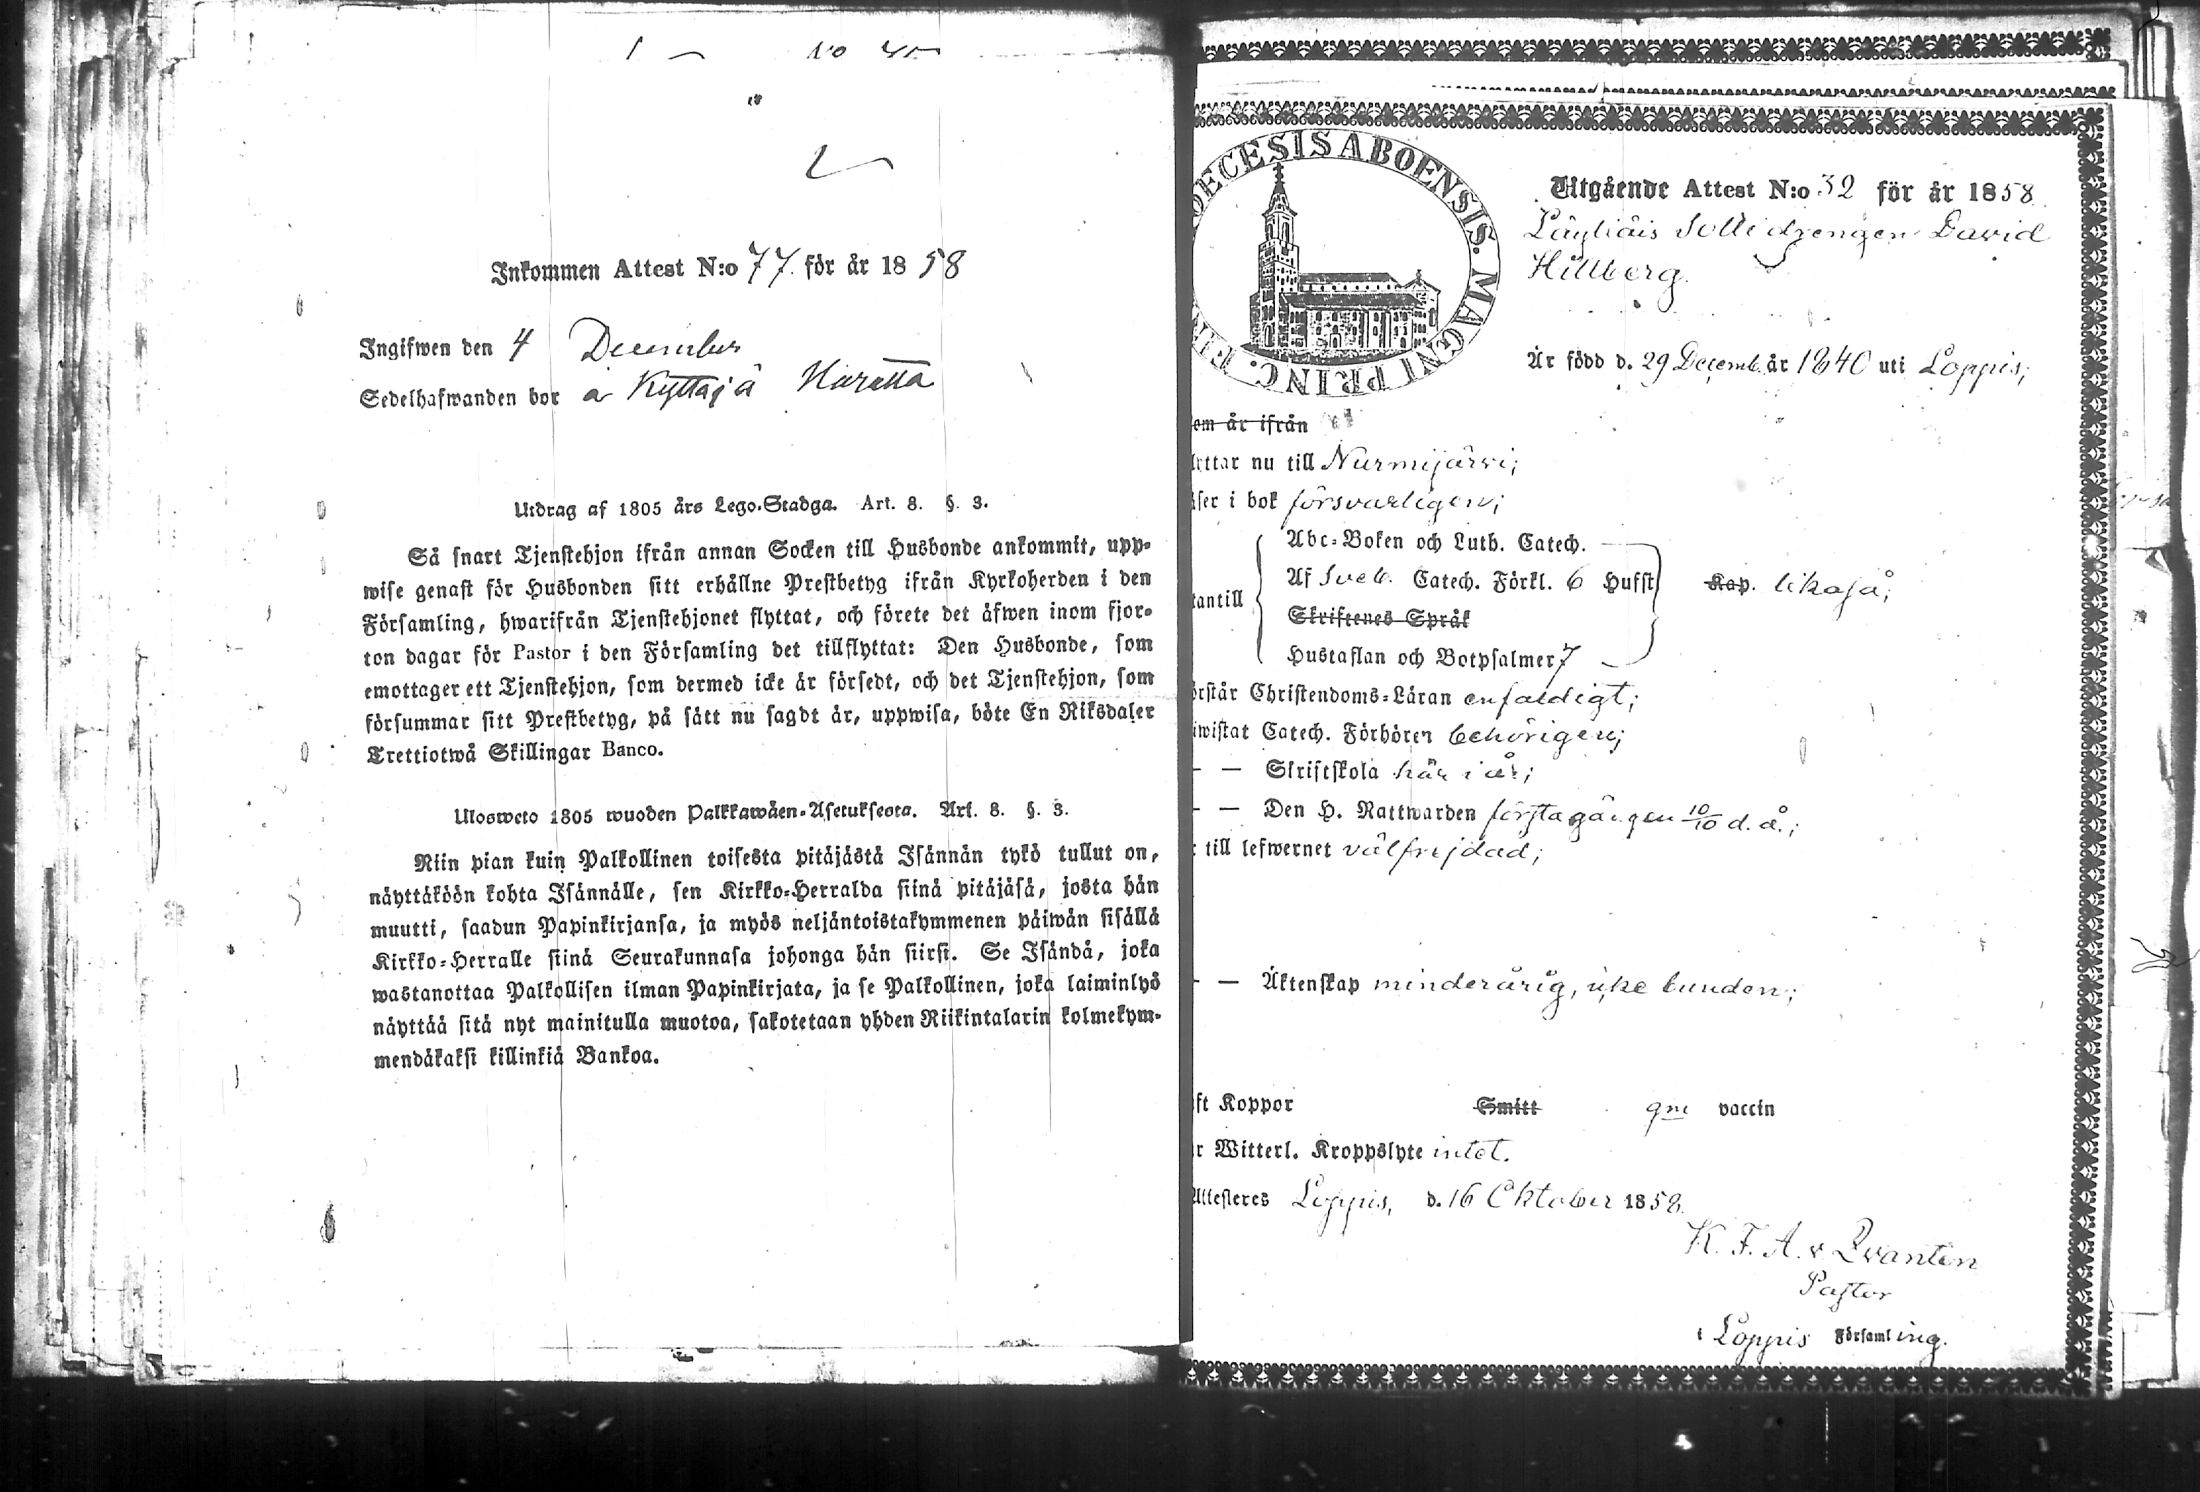 Inkommen Attest N:o 77. för år 1858
Ingifwen den 4 December
Sedelhafwanden bor å Kyttäjä
Utdrag af 1805 års Lego-Stadga. Art. 8. §. 3.
Så snart Tjenstehjon ifrån annan Socken till Husbonde ankommit, upp-
wise genast för Husbonden sitt erhållne Prestbetyg ifrån Kyrkoherden i den
Församling, hwarifrån Tjenstehjonet flyttat, och förete det äfwen inom fjor-
ton dagar för Pastor i den Församling det tillflyttat: Den Husbonde, som
emottager ett Tjenstehjon, som dermed icke är försedt, och det Tjenstehjon, som
försummar sitt Prestbetyg, på sätt nu sagdt är, uppwisa, böte En Riksdaler
Trettiotwå Skillingar Banco.
Ulosweto 1805 wuoden Palkkawäen-Asetuksesta. Art. 8. §. 3.
Niin pian kuin Palkollinen toisesta pitäjästä Isännän tykö tullut on,
näyttäköön kohta Isännälle, sen Kirkko-Herralda siinä pitäjäsä, josta hän
muutti, saadun Papinkirjansa, ja myös neljäntoistakymmenen päiwän sisällä
Kirkko-Herralle siinä Seurakunnasa johonga hän siirsi. Se Isändä, joka
wastanottaa Palkollisen ilman Papinkirjata, ja se Palkollinen, joka laiminlyö
näyttää sitä nyt mainitulla muotoa, sakotetaan yhden Riikintalarin kolmekym-
mendäkaksi killinkiä Bankoa.
ECESIS ABOENSIS. MAGNI PRINC.
Utgående Attest N:o 32 för år 1858
David
Hillberg.
Är född d. 29 Decemb. år 1840 uti Loppis;
om är ifrån
yttar nu till Nurmijärvi;
äser i bok försvarligen;
Abc-Boken och Luth. Catech.
Af Sveb. Catech. Förkl. 6 Hufst Kap. likaså;
tantill
Skriftenes Språk
Hustaflan och Botpsalmer 7
örstår Christendoms-Läran enfaldigt;
iwistat Catech. Förhören behörigen;
— — Skriftskola här i år;
— — Den H. Nattwarden första gången 10/10 d. å.;
r till lefwernet välfrejdad;
— — Äktenskap minderårig, icke bunden;
ft Koppor Smitt gm vaccin
r Witterl. Kroppslyte intet.
Attesteres Loppis, d. 16 Oktober 1858.
K. F. A. v Qvanten
Pastor
i Loppis Församling.